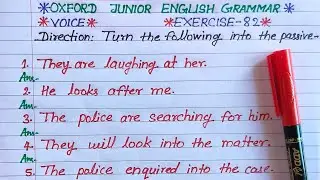 *OXFORD JUNIOR ENGLISH GRAMMAR*
*VOICE* *EXERCISE-82*
Direction: Turn the following into the passive-
1. They are laughing at her.
Ans-
2. He looks after me.
Ans-
3. The police are searching for him.
Ans-
4. They will look into the matter.
Ans-
5. The police enquired into the case.